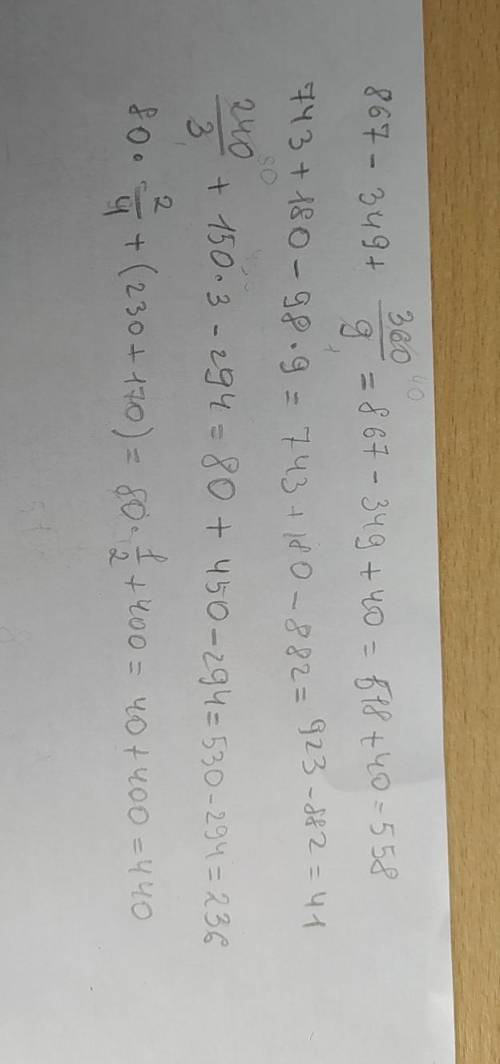 867 - 349 + 360/9 = 867 - 349 + 40 = 518 + 40 = 558
743 + 180 - 98 · 9 = 743 + 180 - 882 = 923 - 882 = 41
240/3 + 150 · 3 - 294 = 80 + 450 - 294 = 530 - 294 = 236
80 · 2/4 + (230 + 170) = 80 · 1/2 + 400 = 40 + 400 = 440